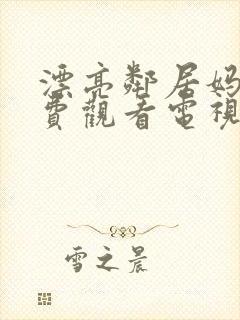 漂亮鄰居媽
費觀看電視
雪之晨